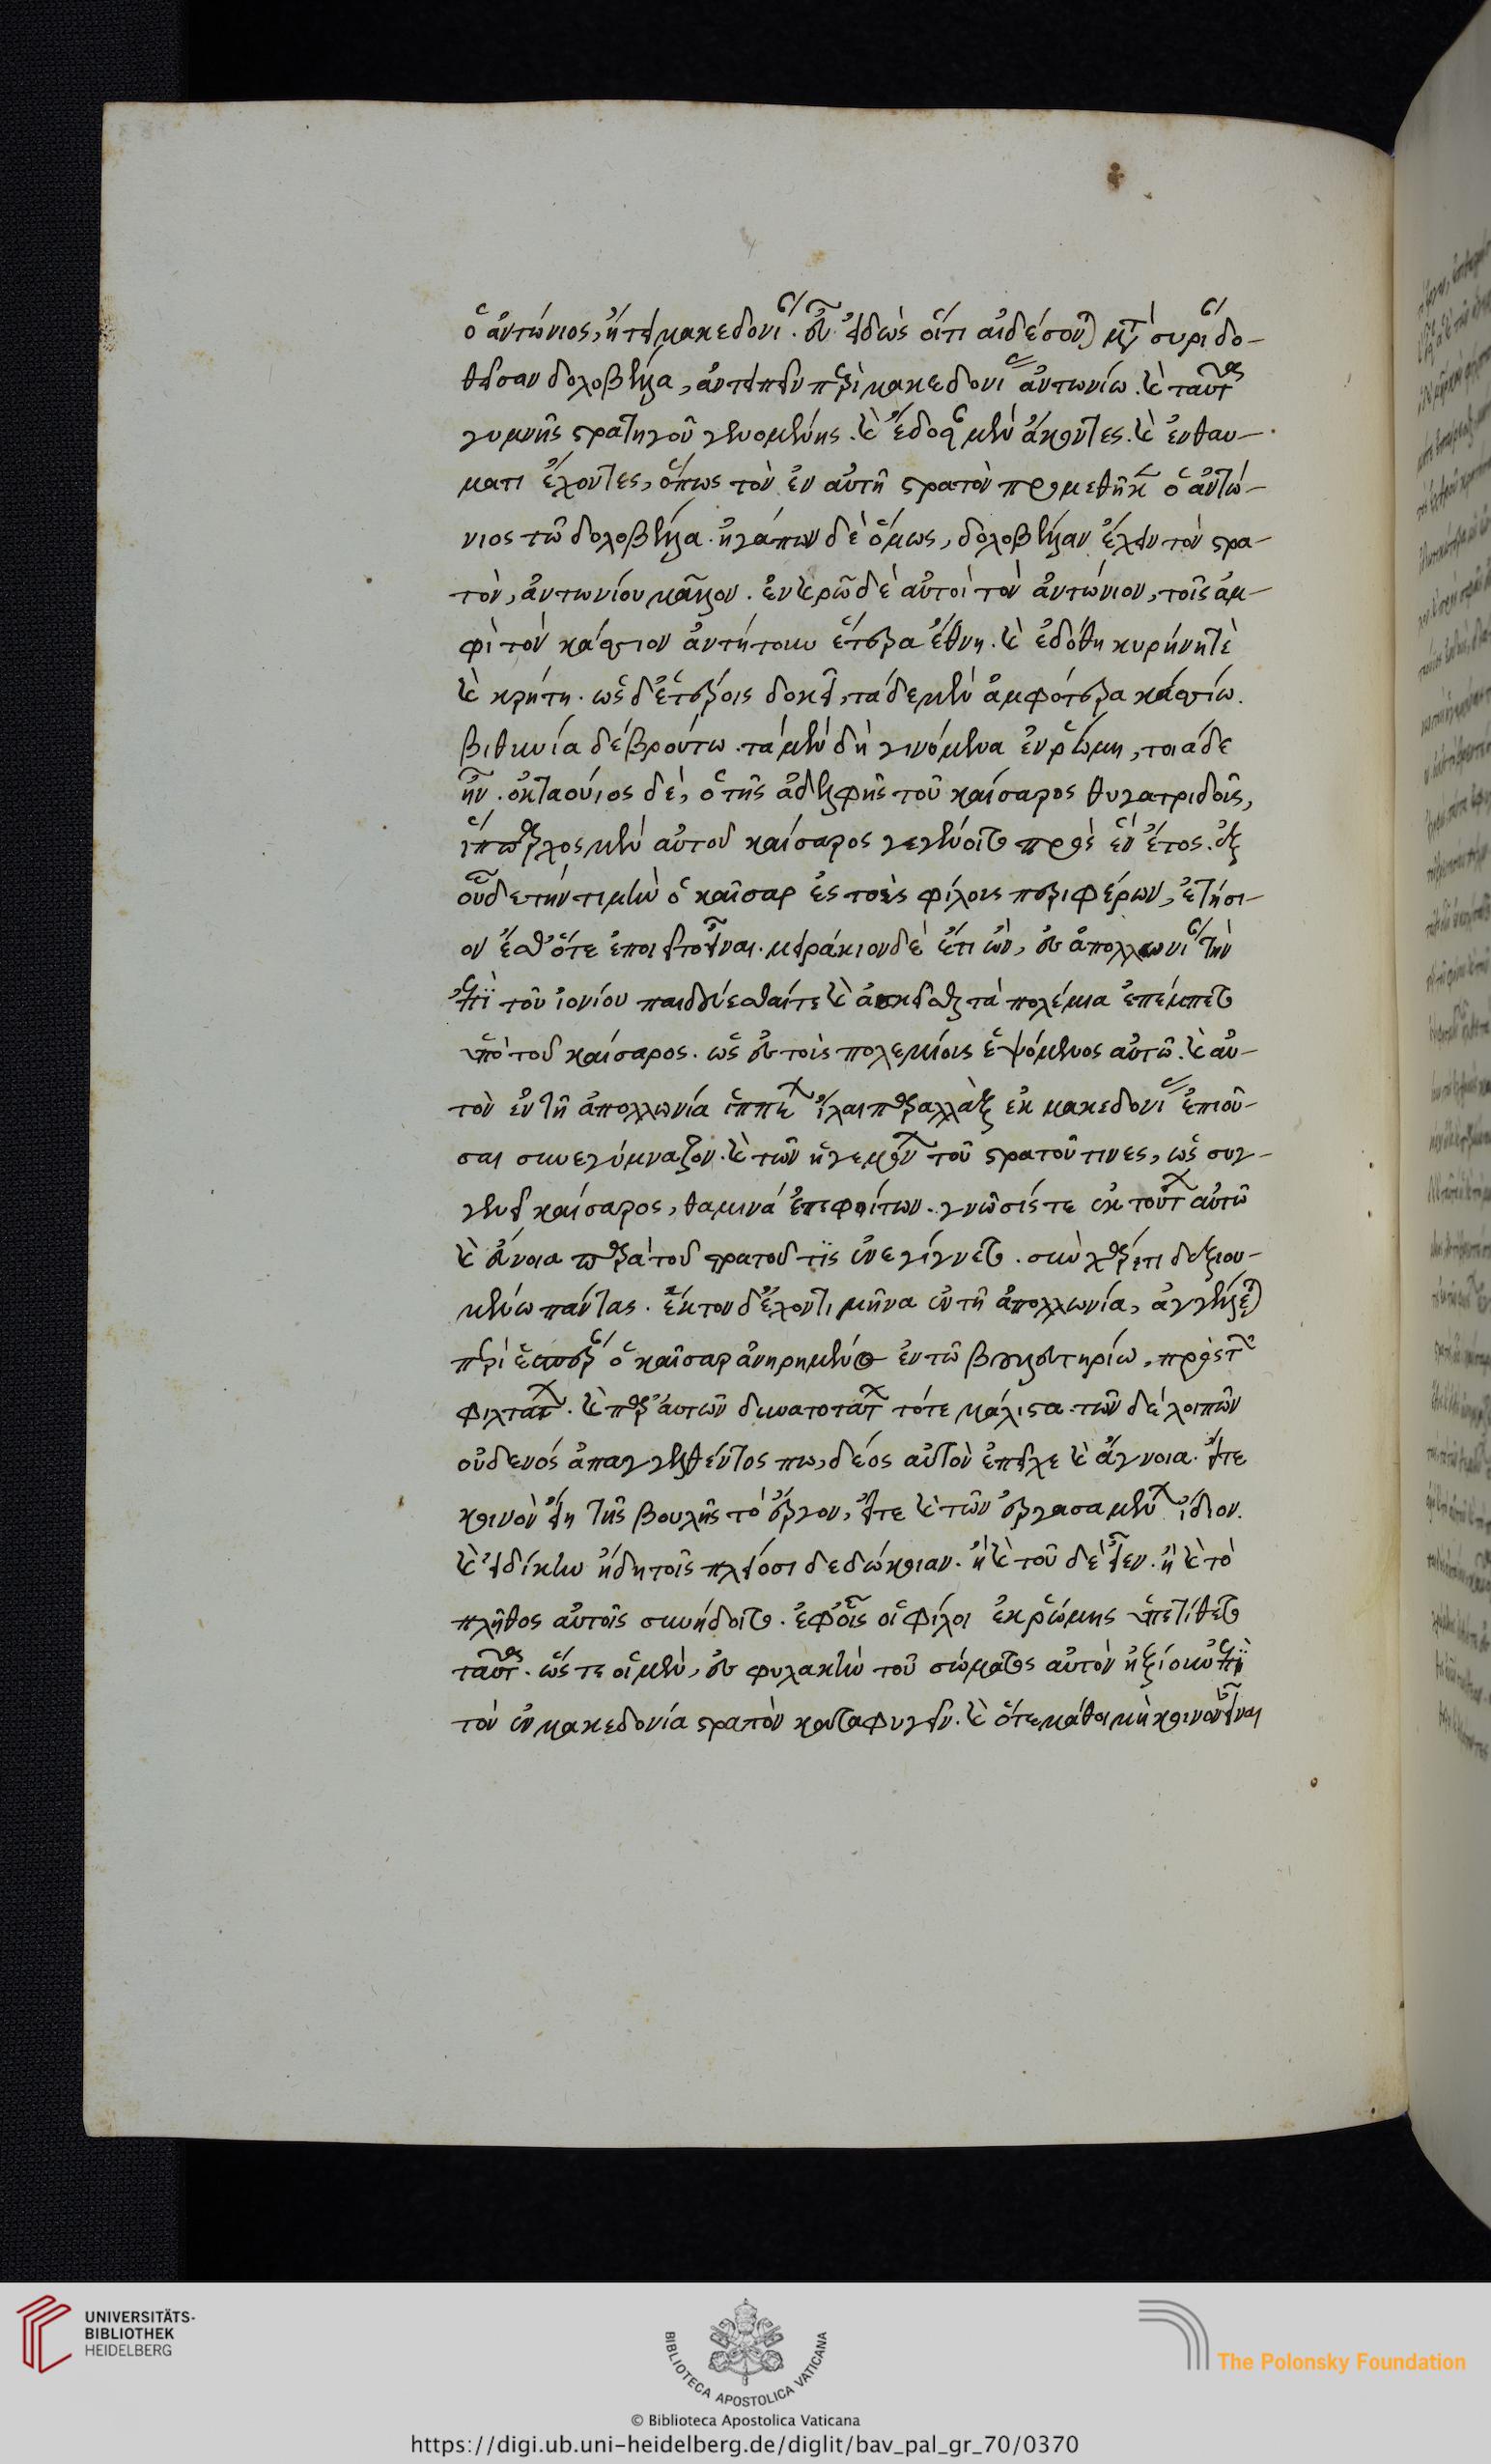 ὁ ἀντώνιος, ᾔτει μακεδονίαν. εὖ εἰδὼς ὅτι αἰδέσονται μετὰ συρίαν δο-
θεῖσαν δολοβέλλα, ἀντειπεῖν περὶ μακεδονίας ἀντωνίω. καὶ ταῦτα
γυμνῆς στρατηγοῦ γενομένης. καὶ ἔδοσαν μὲν ἄκοντες. καὶ ἐν θαύ-
ματι ἔχοντες, ὅπως τὸν ἐν αὐτῆ στρατὸν προμεθῆκεν ὁ ἀντώ-
νιος τῶ δολοβέλλα. ἠγάπων δὲ ὅμως, δολοβέλλαν ἔχειν τὸν στρα-
τὸν, ἀντωνίου μᾶλλον. ἐν καιρῶ δὲ αὐτοὶ τὸν ἀντώνιον, τοῖς ἀμ-
φὶ τὸν κάσσιον ἀντήτουν ἕτερα ἔθνη. καὶ ἐδόθη κυρήνη τὲ
καὶ κρήτη. ὡς δ' ἑτέροις δοκεῖ, τάδε μὲν ἀμφότερα κασσίω.
βιθυνία δὲ βρούτω. τὰ μὲν δὴ γινόμενα ἐν ῥώμη, τοιάδε
ἦν. ὀκταούιος δὲ, ὁ τῆς ἀδελφῆς τοῦ καίσαρος θυγατριδοῦς,
ἵππαρχος μὲν αὐτοῦ καίσαρος γεγένοιτο πρὸς ἓν ἔτος. ἐξ
οὗ δε τὴν τιμὴν ὁ καῖσαρ ἐς τοὺς φίλους περιφέρων, ἐτήσι-
ον ἔσθ' ὅτε ἐποιεῖτο εἶναι. μειράκιον δὲ ἔτι ὢν, ἐς ἀπολλωνίαν τὴν
ἐπὶ τοῦ ἰονίου παιδεύεσθαί τε καὶ ἀσκεῖσθαι τὰ πολέμια ἐπέμπετο
ὑπὸ τοῦ καίσαρος. ὡς ἐς τοὺς πολεμίους ἑψόμενος αὐτῶ. καὶ αὐ-
τὸν ἐν τῆ ἀπολλωνία ἱππέων ἶλαι παραλλὰξ ἐκ μακεδονίας ἐπιοῦ-
σαι συνεγύμναζον. καὶ τῶν ἡγεμόνων τοῦ στρατοῦ τινες, ὡς συγ-
γενεῖ καίσαρος, θαμινὰ ἐπεφοίτων. γνῶσίς τε ἐκ τούτων αὐτῶ
καὶ εὔνοια παρὰ τοῦ στρατοῦ τίς ἐνεγίγνετο. σὺν χάριτι δεξιου-
μένω πάντας. ἕκτον δ' ἔχοντι μῆνα ἐν τῆ ἀπολλωνία, ἀγγέλλεται
περὶ ἑσπέραν ὁ καῖσαρ ἀνηρημένος ἐν τῶ βουλευτηρίω, πρὸς τῶν
φιλτάτων. καὶ παρ' αὐτῶν δυνατοτάτων τότε μάλιστα. τῶν δὲ λοιπῶν
οὐδενὸς ἀπαγγελθέντος πω, δέος αὐτὸν ἐπεῖχε καὶ ἄγνοια. εἴτε
κοινὸν εἴη τῆς βουλῆς τὸ ἔργον, εἴτε καὶ τῶν ἐργασαμένων ἴδιον.
καὶ εἰ δίκην ἤδη τοῖς πλείοσι δεδώκοιαν. ἢ καὶ τοῦ δὲ εἶεν. ἢ καὶ τὸ
πλῆθος αὐτοῖς συνήδοιτο. ἐφ' οἷς οἱ φίλοι ἐκ ῥώμης ὑπετίθετο
ταῦτα. ὥς τε οἱ μὲν, ἐς φυλακὴν τοῦ σώματος αὐτὸν ἠξίουν ἐπὶ
τὸν ἐν μακεδονία στρατὸν καταφυγεῖν. καὶ ὅτε μάθοι μὴ κοινὸν εἶναι
UNIVERSITÄTS-
BIBLIOTHEK
HEIDELBERG
BIBLIOTECA APOSTOLICA VATICANA
The Polonsky Foundation
© Biblioteca Apostolica Vaticana
https://digi.ub.uni-heidelberg.de/diglit/bav_pal_gr_70/0370